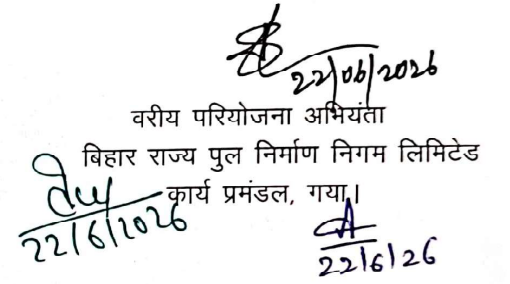 22/06/2026
वरीय परियोजना अभियंता
बिहार राज्य पुल निर्माण निगम लिमिटेड
कार्य प्रमंडल, गया।
22/6/2026
22/6/26